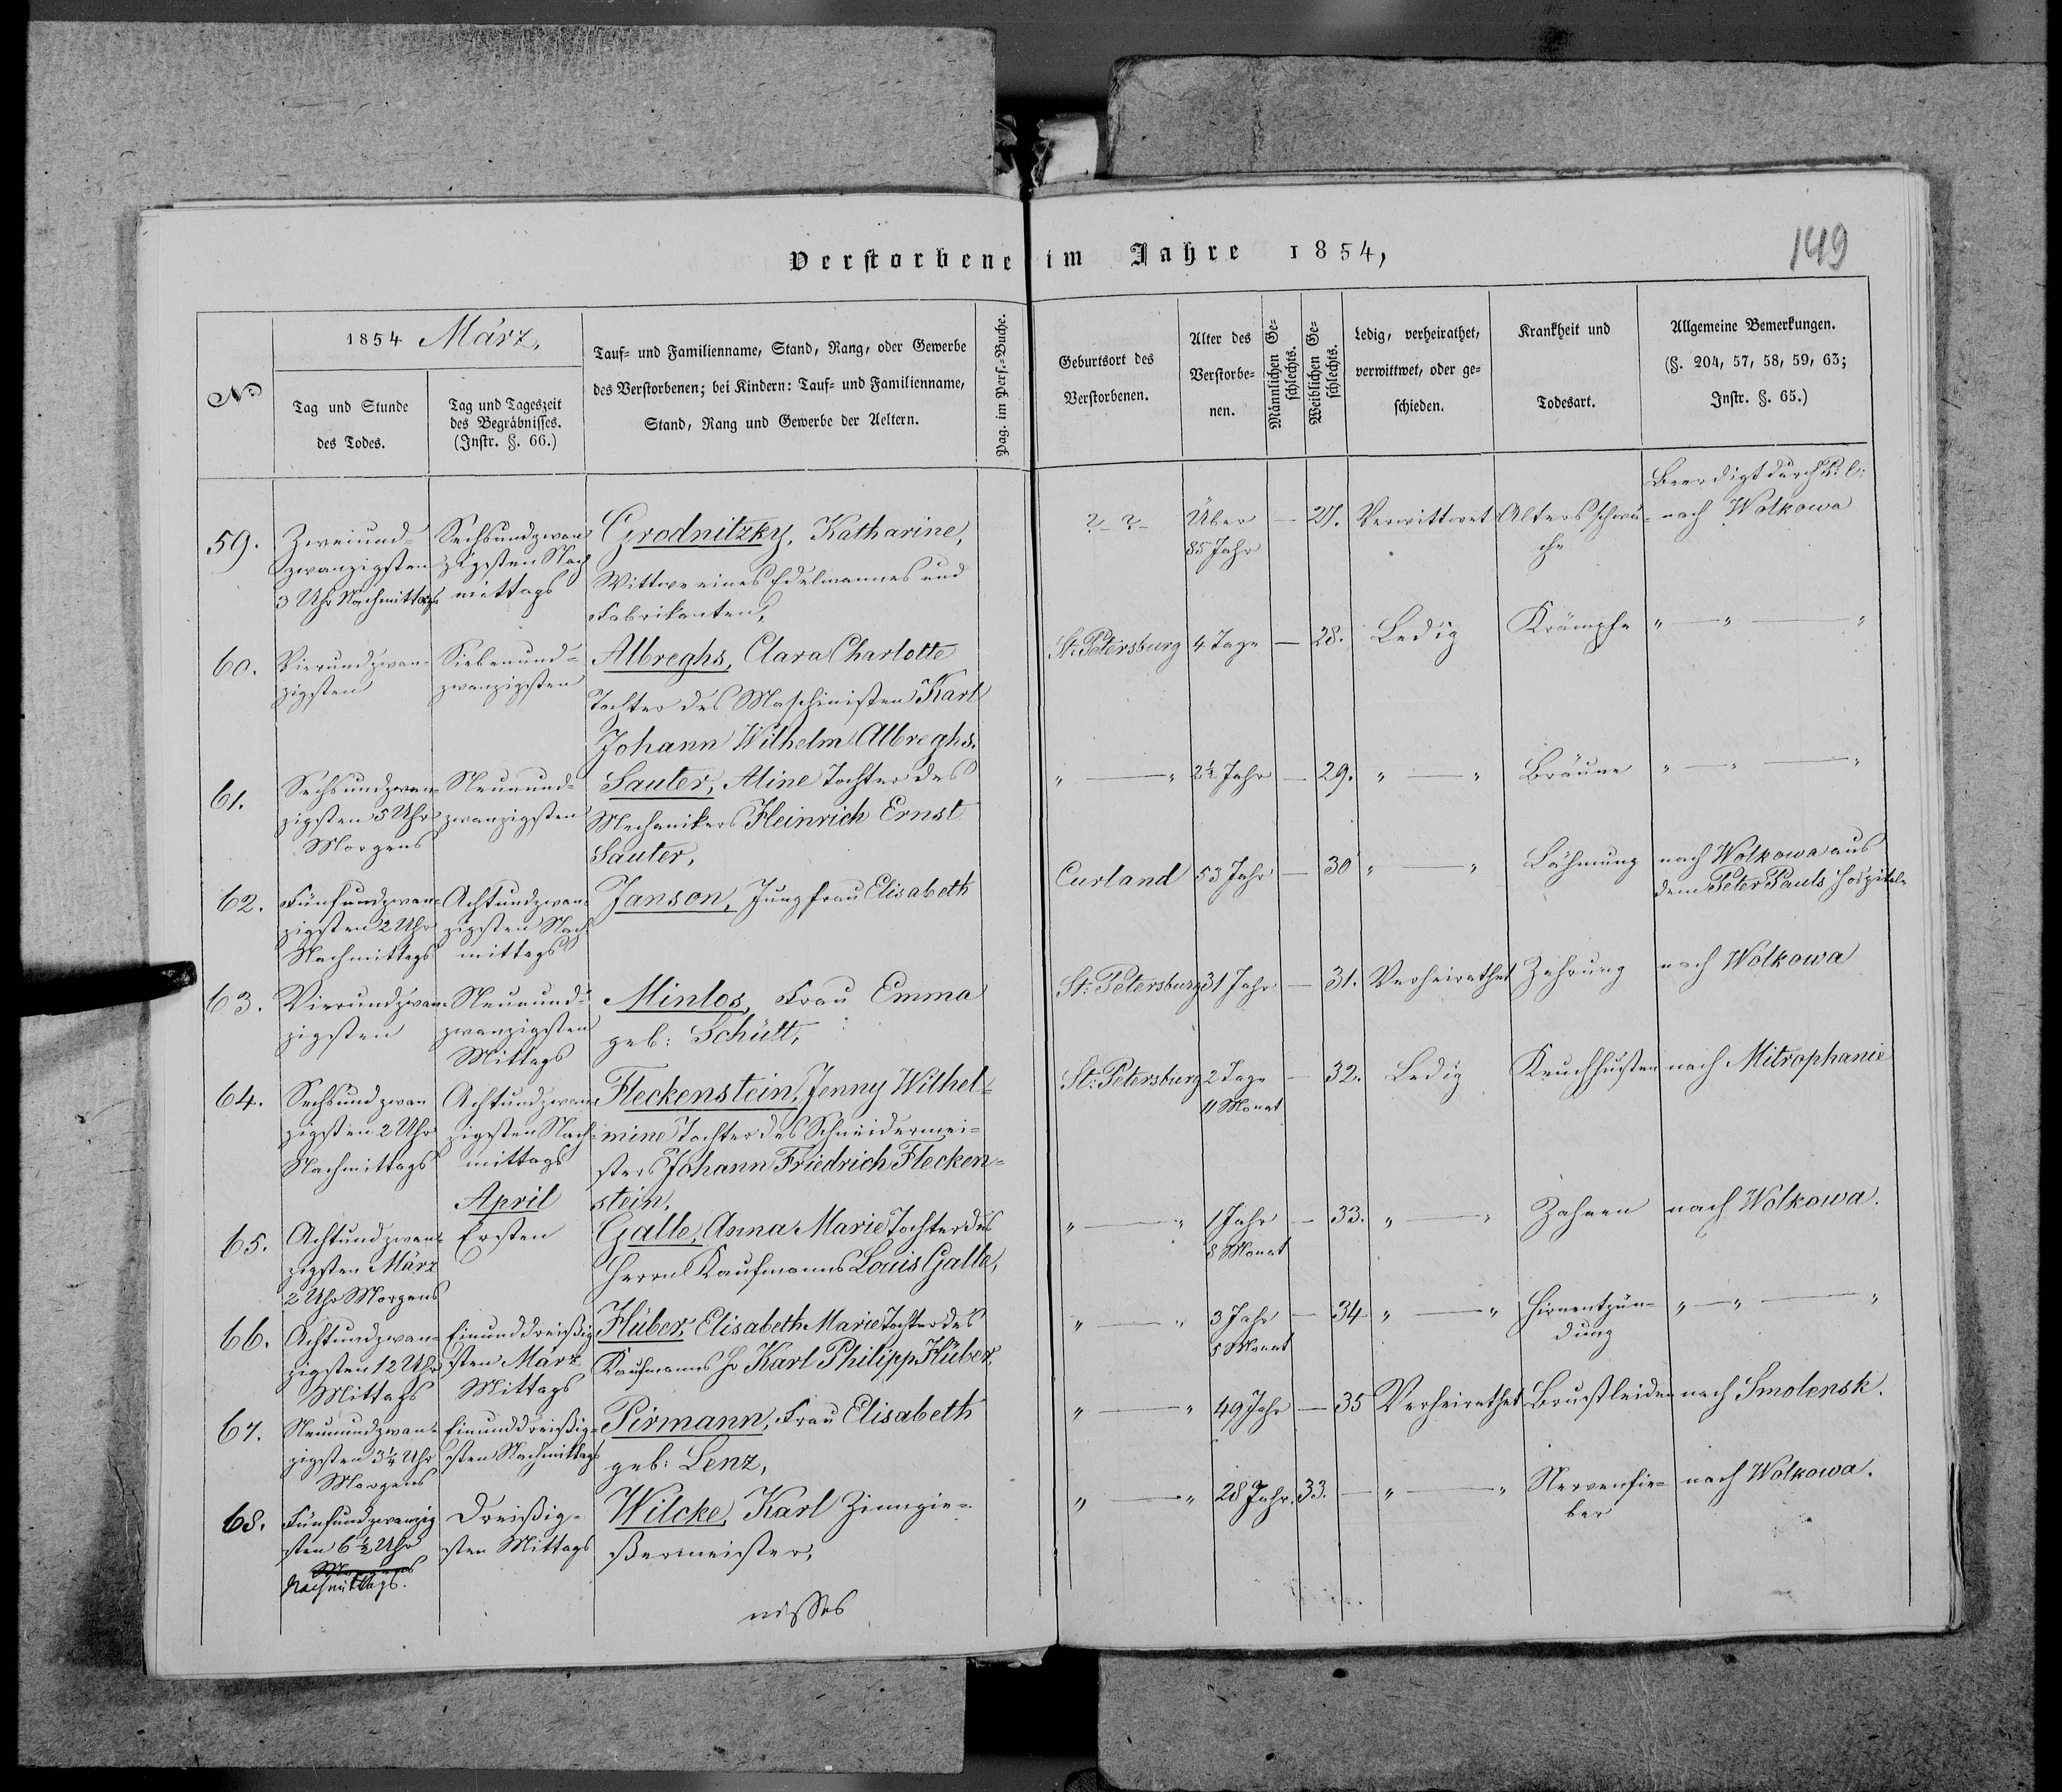 Verstorbene im Jahre 1854,
149
No
1854 März,
Tag und Stunde
des Todes.
Tag und Tageszeit
des Begräbnisses.
(Instr. §. 66.)
Tauf- und Familienname, Stand, Rang, oder Gewerbe
des Verstorbenen; bei Kindern: Tauf- und Familienname,
Stand, Rang und Gewerbe der Aeltern.
Pag. im Pers.-Buche.
Geburtsort des
Verstorbenen.
Alter des
Verstorbe-
nen.
Männlichen Ge-
schlechts.
Weiblichen Ge-
schlechts.
Ledig, verheirathet,
verwittwet, oder ge-
schieden.
Krankheit und
Todesart.
Allgemeine Bemerkungen.
(§. 204, 57, 58, 59, 63;
Instr. §. 65.)
59.
Zweiund-
zwanzigsten
3 Uhr Nachmittags
Sechsundzwan-
zigsten Nach
mittags
Grodnitzky, Katharine,
Wittwe eines Edelmannes und
Fabrikanten,
?-?-
Über
85 Jahr
—
27.
Verwittwet
Altersschwä-
che
Beerdigt durch
nach Wolkowa
60.
Vierundzwan-
zigsten
Siebenund-
zwanzigsten
Albreghs, Clara Charlotte
Tochter des Maschinisten Karl
Johann Wilhelm Albreghs.
St: Petersburg
4 Tage
—
28.
Ledig
Krämpfe
" — " — "
61.
Sechsundzwan-
zigsten 5 Uhr
Morgens
Neunund-
zwanzigsten
Sauter, Aline Tochter des
Mechanikers Heinrich Ernst
Sauter,
" — "
2½ Jahr
—
29.
" — "
Bräune
" — " — "
62.
Fünfundzwan-
zigsten 2 Uhr
Nachmittags
Achtundzwan-
zigsten Nach
mittags
Janson, Jungfrau Elisabeth
Curland
53 Jahr
—
30
" — "
Lähmung
nach Wolkowa aus
dem Peter Pauls Hospitale
63.
Vierundzwan-
zigsten
Neunund-
zwanzigsten
Mittags
Minlos, Frau Emma
geb: Schütt,
St: Petersburg
31 Jahr
—
31.
Verheirathet
Zehrung
nach Wolkowa
64.
Sechsundzwan
zigsten 2 Uhr
Nachmittags
Achtundzwan-
zigsten Nach-
mittags
Fleckenstein, Jenny Wilhel-
mine Tochter des Schneidermei-
sters Johann Friedrich Flecken-
stein,
St: Petersburg
2 Tage
11 Monat
—
32.
Ledig
Keuchhusten
nach Mitrophanie
65.
Achtundzwan-
zigsten März
2 Uhr Morgens
April
Ersten
Galle, Anna Marie Tochter des
Herrn Kaufmanns Louis Galle,
" — "
1 Jahr
8 Monat
—
33.
" — "
Zahnen
nach Wolkowa.
66.
Achtundzwan-
zigsten 12 Uhr
Mittags
Einunddreißig-
sten März
Mittags
Hüber, Elisabeth Marie Tochter des
Kaufmanns H Karl Philipp Hüber,
" — "
3 Jahr
5 Monat
—
34
" — "
Hirnentzün-
dung
" — " — "
67.
Neunundzwan-
zigsten 3½ Uhr
Morgens
Einunddreißig-
sten Nachmittags
Pirmann, Frau Elisabeth
geb: Lenz,
" — "
49 Jahr
—
35
Verheirathet
Brustleiden
nach Smolensk.
68.
Fünfundzwanzig
sten 6½ Uhr
Morgens
Nachmittags.
Dreißig-
sten Mittags
Wilcke, Karl Zinngie-
ßermeister,
" — "
28 Jahr.
33.
—
" — "
Nervenfie-
ber
nach Wolkowa.